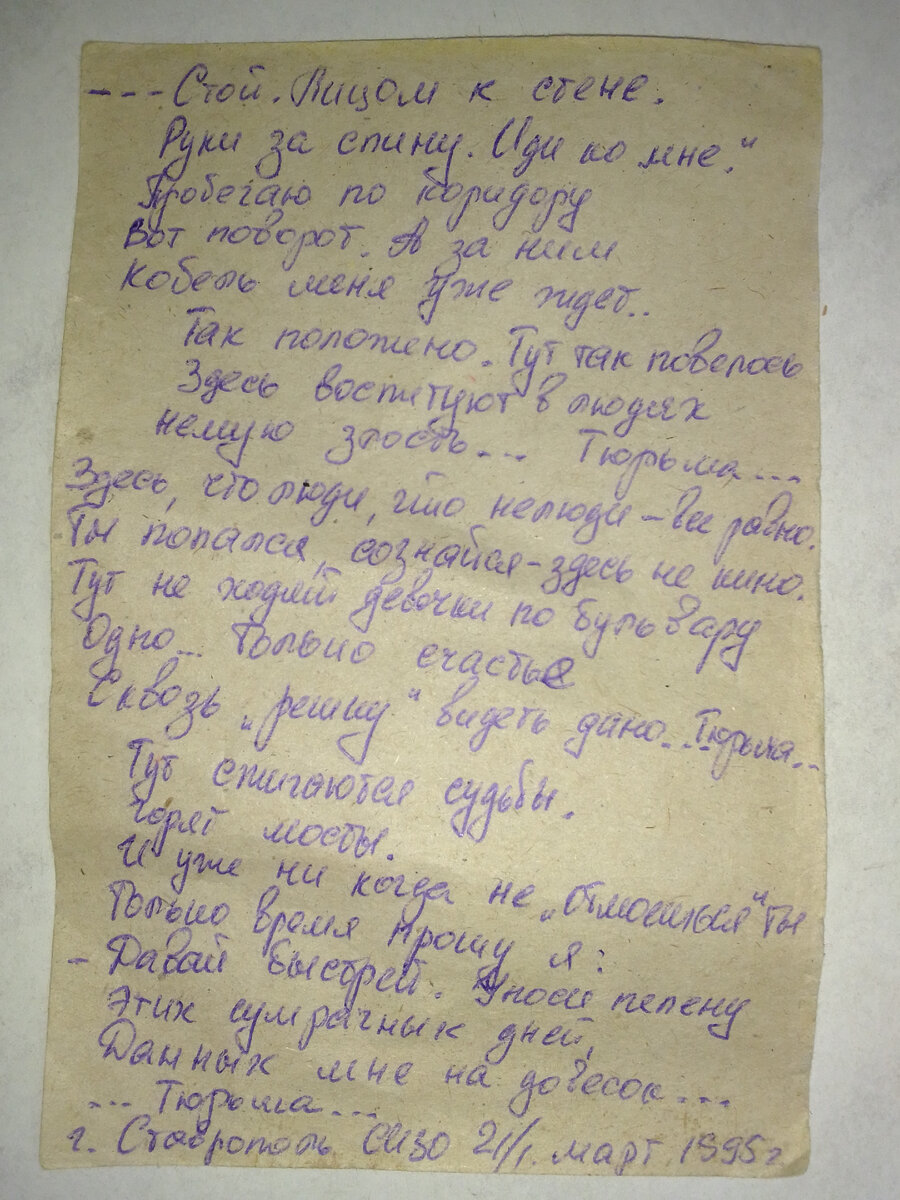 --- Стой. Лицом к стене.
Руки за спину. Иди ко мне."
Пробегаю по коридору
Вот поворот. А за ним
Кобель меня уже ждет..
Так положено. Тут так повелось
Здесь воспитуют в людях
немую злость... Тюрьма....
Здесь, что люди, что нелюди - все равно.
Ты попался, сознайся - здесь не кино.
Тут не ходят девочки по бульвару
Одно... Только счастье
Сквозь „решку" видеть дано... Тюрьма..
Тут сжигаются судьбы.
Горят мосты.
И уже ни когда не „отмоешься" ты
Только время прошу я:
- Давай быстрей. Уноси пелену
Этих сумрачных дней,
Данных мне на довесок...
... Тюрьма...
г. Ставрополь СИЗО 21/1. март 1995г